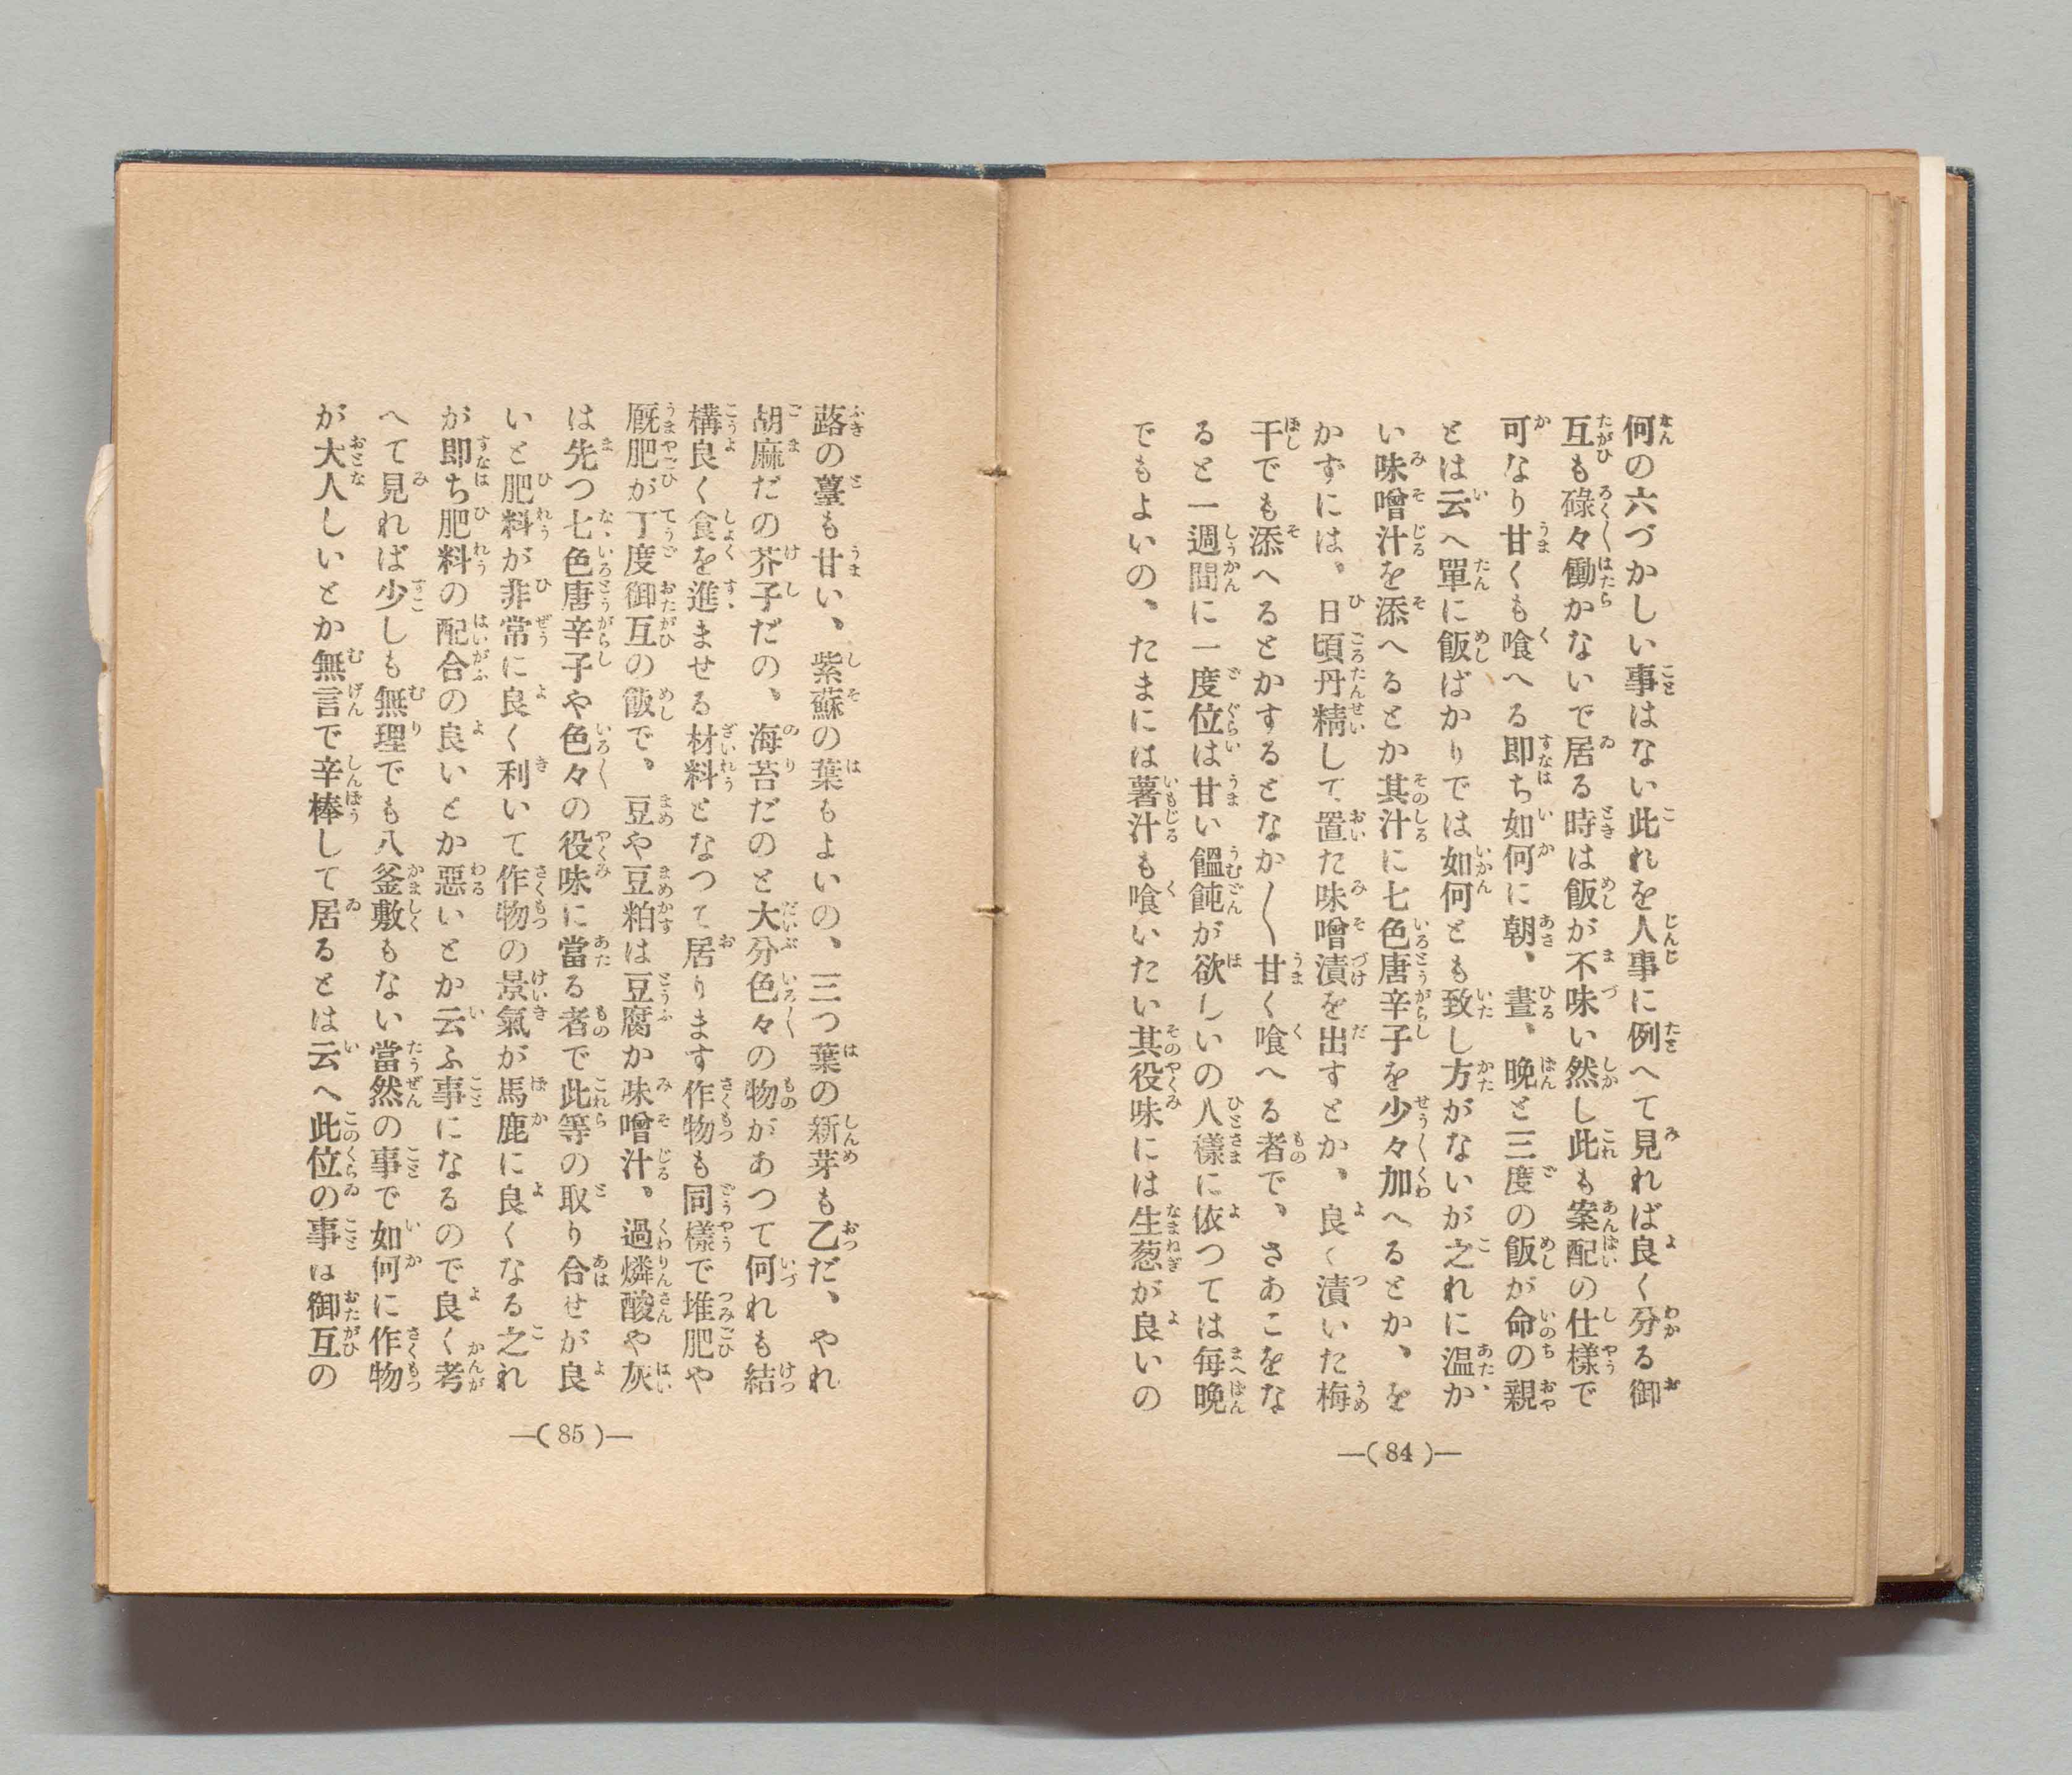 何の六づかしい事はない此れを人事に例へて見れば良く分る御
互も碌々働かないで居る時は飯が不味い然し此も案配の仕樣で
可なり甘くも喰へる即ち如何に朝、晝、晩と三度の飯が命の親
とは云へ單に飯ばかりでは如何とも致し方がないが之れに温か
い味噌汁を添へるとか其汁に七色唐辛子を少々加へるとか、を
かずには、日頃丹精して置いた味噌漬を出すとか、良く漬いた梅
干でも添へるとかするとなか〱甘く喰へる者で、さあこをな
ると一週間に一度位は甘い饂飩が欲しいの人樣に依つては每晩
でもよいの、たまには薯汁も喰いたい其役味には生葱が良いの
—( 84 )—
蕗の薹も甘い、紫蘇の葉もよいの、三つ葉の新芽も乙だ、やれ
胡麻だの芥子だの、海苔だのと大分色々の物があつて何れも結
構良く食を進ませる材料となつて居ります作物も同樣で堆肥や
厩肥が丁度御互の飯で、豆や豆粕は豆腐か味噌汁、過燐酸や灰
は先つ七色唐辛子や色々の役味に當る者で此等の取り合せが良
いと肥料が非常に良く利いて作物の景氣が馬鹿に良くなる之れ
が即ち肥料の配合の良いとか惡いとか云ふ事になるので良く考
へて見れば少しも無理でも八釜敷もない當然の事で如何に作物
が大人しいとか無言で辛棒して居るとは云へ此位の事は御互の
—( 85 )—